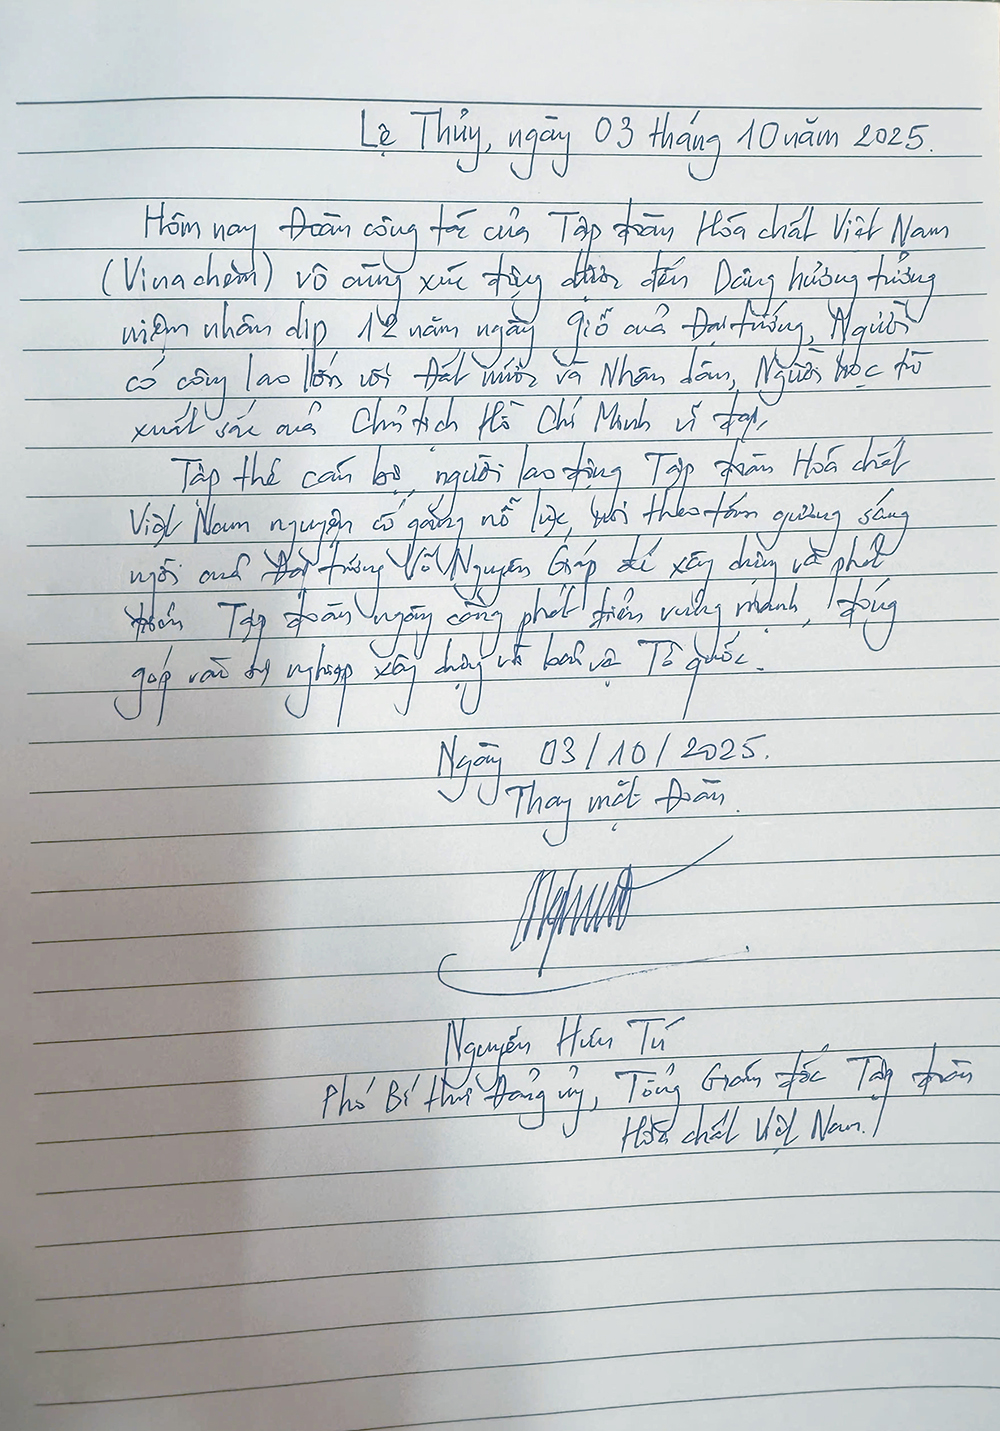 Lệ Thủy, ngày 03 tháng 10 năm 2025.
Hôm nay Đoàn công tác của Tập đoàn Hóa chất Việt Nam
(Vinachem) vô cùng xúc động được đến Dâng hương tưởng
niệm nhân dịp 12 năm ngày giỗ của Đại tướng, Người
có công lao lớn với Đất nước và Nhân dân, Người học trò
xuất sắc của Chủ tịch Hồ Chí Minh vĩ đại,
Tập thể cán bộ, người lao động Tập đoàn Hoá chất
Việt Nam nguyện cố gắng nỗ lực, noi theo tấm gương sáng
ngời của Đại tướng Võ Nguyên Giáp để xây dựng và phát
triển Tập đoàn ngày càng phát triển vững mạnh, đóng
góp vào sự nghiệp xây dựng và bảo vệ Tổ quốc.
Ngày 03/10/2025.
Thay mặt Đoàn.
Nguyễn Hữu Tú
Phó Bí thư Đảng ủy, Tổng Giám đốc Tập đoàn
Hóa chất Việt Nam./